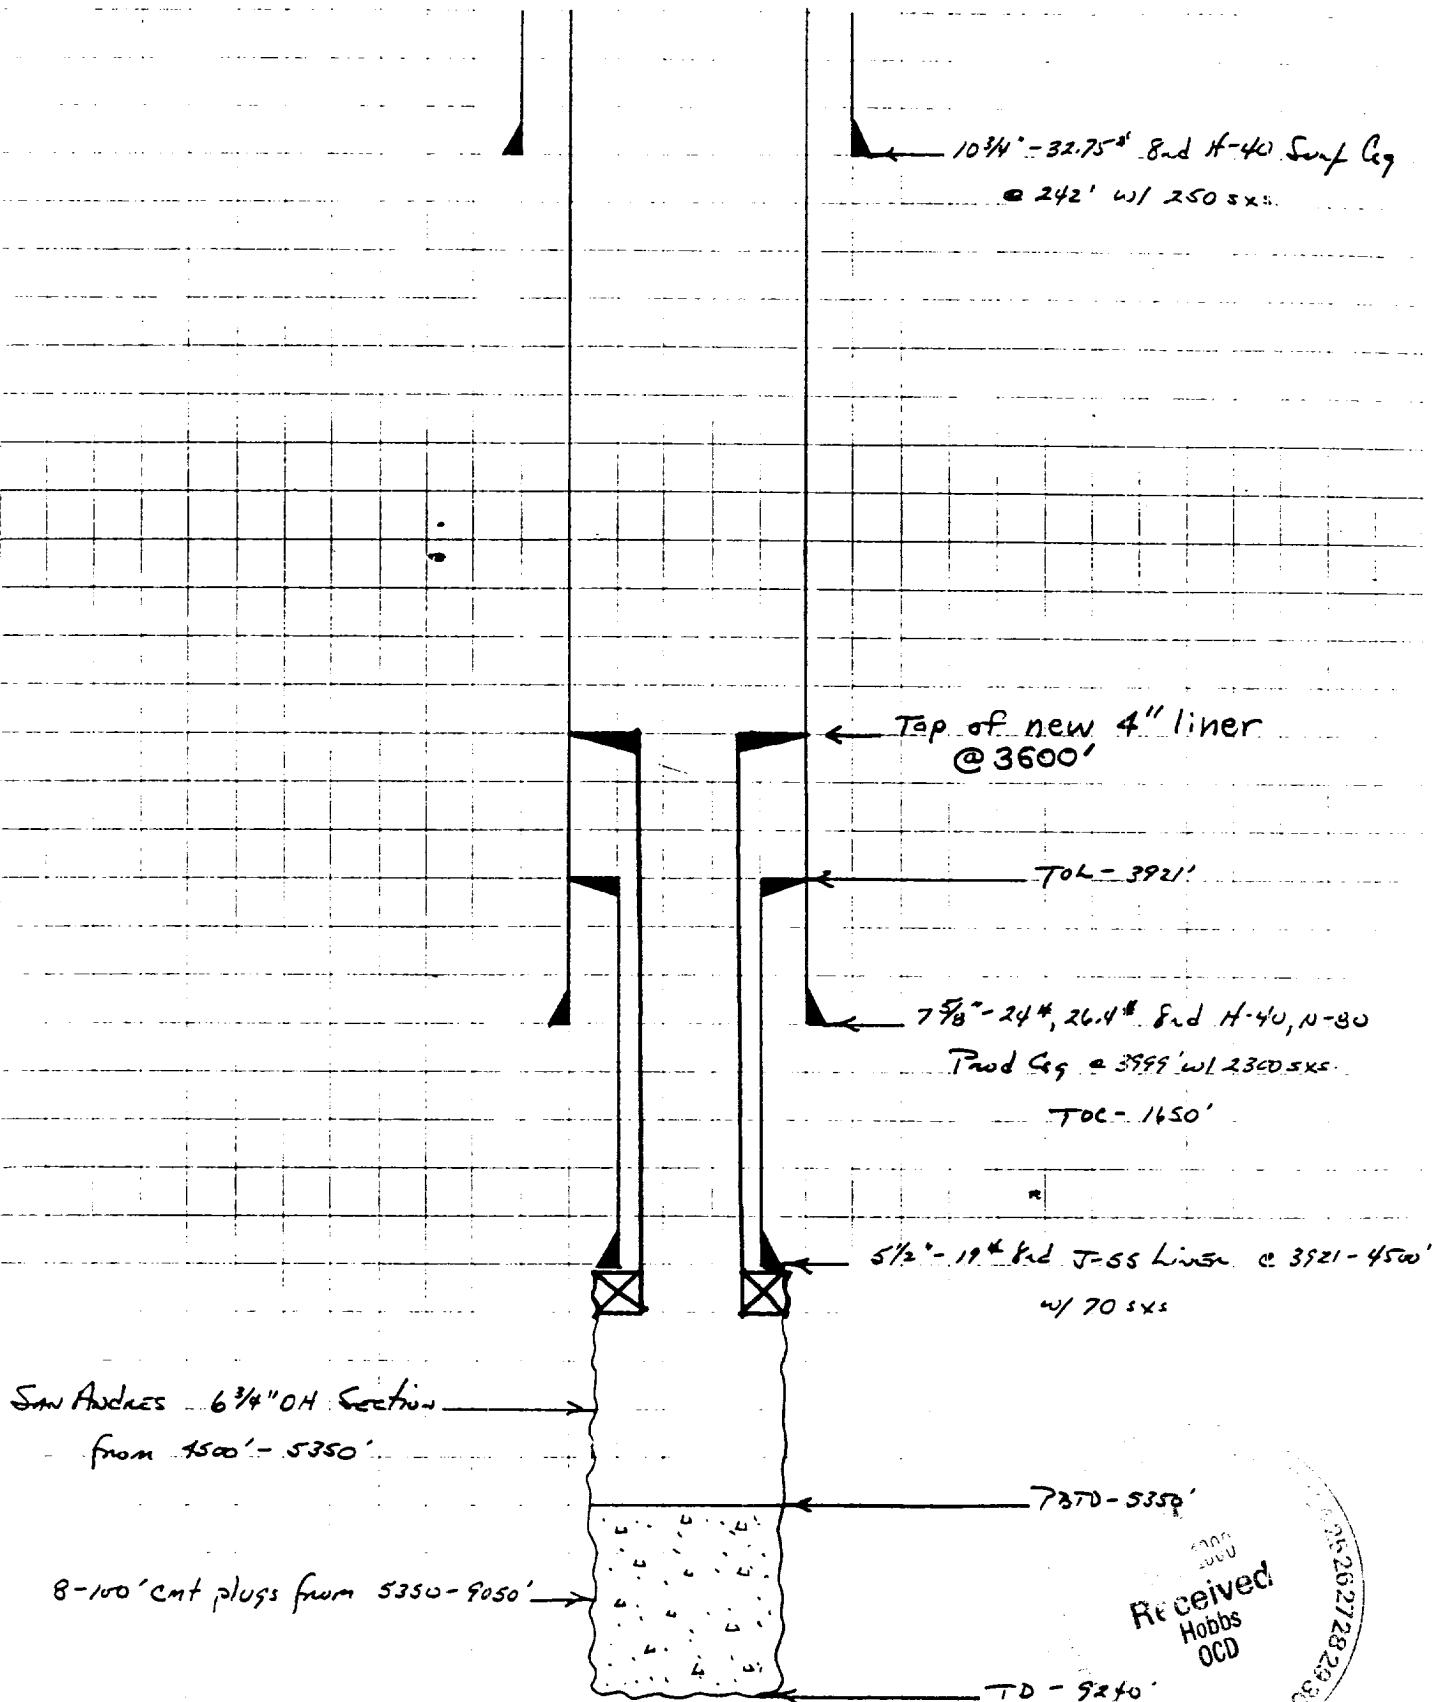 10 3/4" - 32.75# 8rd H-40 Surf Csg
@ 242' w/ 250 sxs
Top of new 4" liner
@ 3600'
TOL - 3921'
7 5/8" - 24#, 26.4# 8rd H-40, N-80
Prod Csg @ 3999' w/ 2300 sxs
TOC - 1650'
5 1/2" - 19# 8rd J-55 Liner @ 3921-4500'
w/ 70 sxs
San Andres 6 3/4" OH Section
from 4500' - 5350'
PBTD - 5350'
8-100' cmt plugs from 5350-9050'
TD - 9240'
Received
Hobbs
OCD